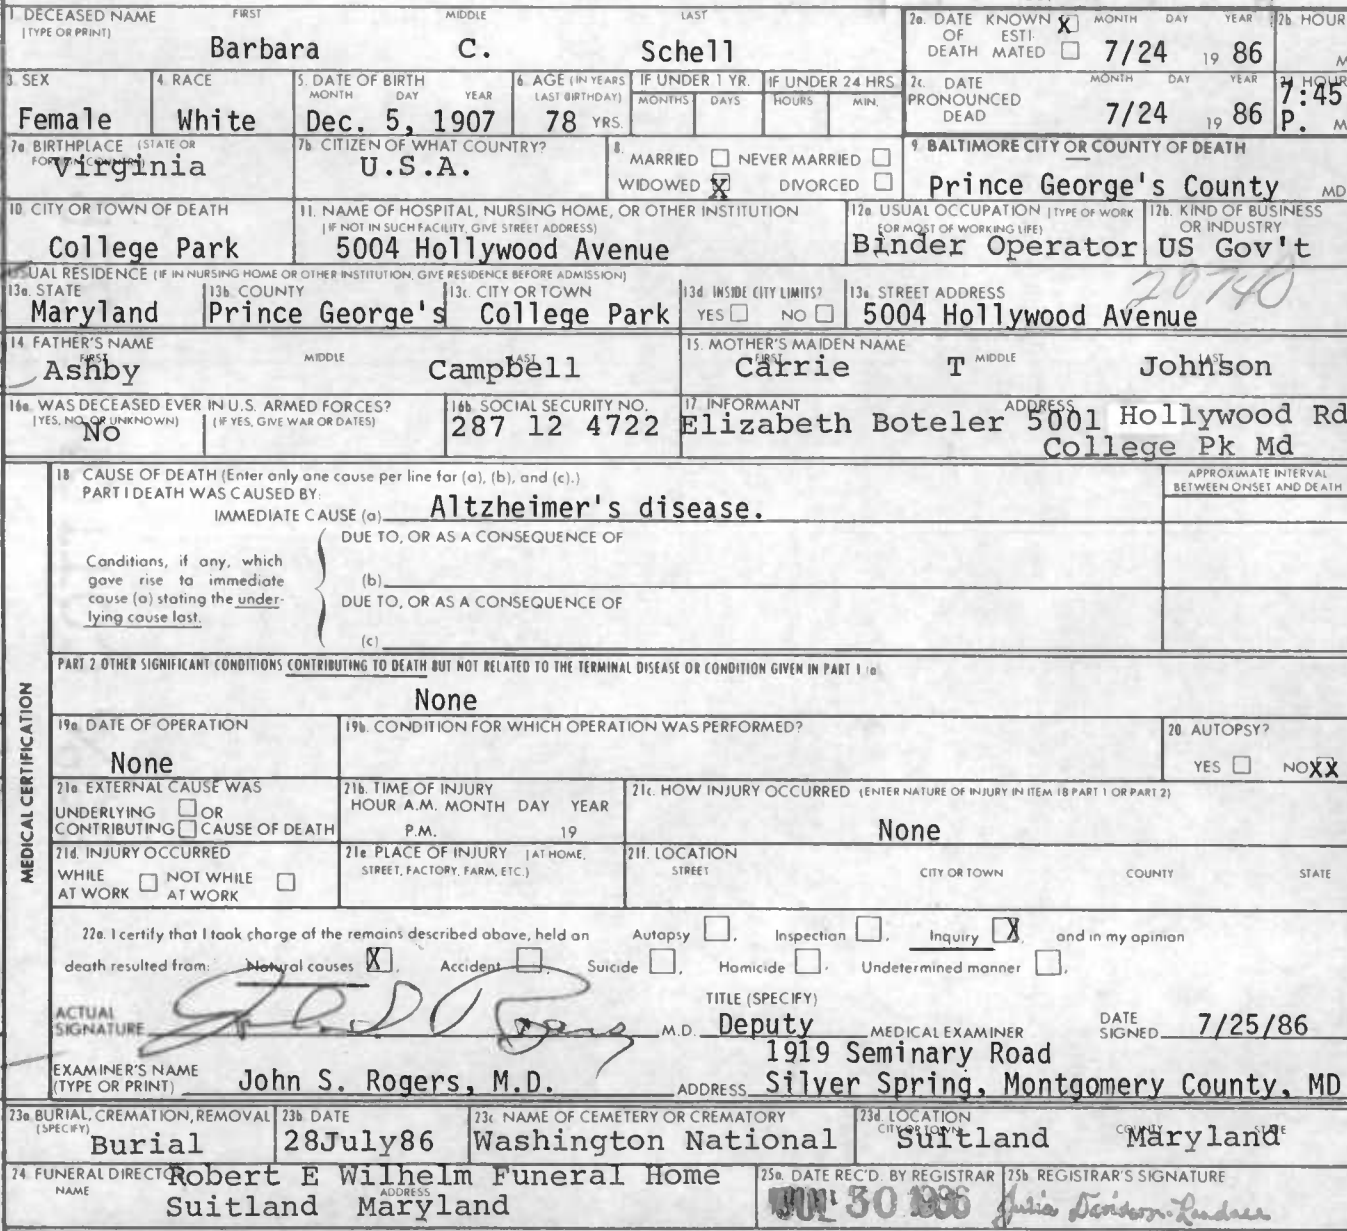 1 DECEASED NAME (TYPE OR PRINT) FIRST MIDDLE LAST
Barbara C. Schell
2a. DATE OF DEATH KNOWN X ESTIMATED MONTH DAY YEAR 7/24 19 86
2b HOUR M
3. SEX Female
4. RACE White
5. DATE OF BIRTH MONTH DAY YEAR Dec. 5, 1907
6. AGE (IN YEARS LAST BIRTHDAY) 78 YRS.
IF UNDER 1 YR. MONTHS DAYS
IF UNDER 24 HRS HOURS MIN.
2c. DATE PRONOUNCED DEAD MONTH DAY YEAR 7/24 19 86
HOUR 7:45 P. M
7a BIRTHPLACE (STATE OR FOREIGN COUNTRY) Virginia
7b. CITIZEN OF WHAT COUNTRY? U.S.A.
8. MARRIED NEVER MARRIED
WIDOWED X DIVORCED
9. BALTIMORE CITY OR COUNTY OF DEATH
Prince George's County MD
10. CITY OR TOWN OF DEATH College Park
11. NAME OF HOSPITAL, NURSING HOME, OR OTHER INSTITUTION
(IF NOT IN SUCH FACILITY, GIVE STREET ADDRESS)
5004 Hollywood Avenue
12a. USUAL OCCUPATION (TYPE OF WORK FOR MOST OF WORKING LIFE) Binder Operator
12b. KIND OF BUSINESS OR INDUSTRY US Gov't
USUAL RESIDENCE (IF IN NURSING HOME OR OTHER INSTITUTION, GIVE RESIDENCE BEFORE ADMISSION)
13a. STATE Maryland
13b. COUNTY Prince George's
13c. CITY OR TOWN College Park
13d. INSIDE CITY LIMITS? YES NO
13e. STREET ADDRESS 5004 Hollywood Avenue
20740
14. FATHER'S NAME FIRST MIDDLE LAST
Ashby Campbell
15. MOTHER'S MAIDEN NAME FIRST MIDDLE LAST
Carrie T Johnson
16a. WAS DECEASED EVER IN U.S. ARMED FORCES?
(YES, NO, OR UNKNOWN) (IF YES, GIVE WAR OR DATES)
No
16b. SOCIAL SECURITY NO.
287 12 4722
17. INFORMANT ADDRESS
Elizabeth Boteler 5001 Hollywood Rd
College Pk Md
MEDICAL CERTIFICATION
18 CAUSE OF DEATH (Enter only one cause per line for (a), (b), and (c).)
PART I DEATH WAS CAUSED BY:
IMMEDIATE CAUSE (a) Altzheimer's disease.
APPROXIMATE INTERVAL
BETWEEN ONSET AND DEATH
DUE TO, OR AS A CONSEQUENCE OF
Conditions, if any, which
gave rise to immediate
cause (a) stating the under-
lying cause last.
(b)
DUE TO, OR AS A CONSEQUENCE OF
(c)
PART 2 OTHER SIGNIFICANT CONDITIONS CONTRIBUTING TO DEATH BUT NOT RELATED TO THE TERMINAL DISEASE OR CONDITION GIVEN IN PART 1 (a
None
19a. DATE OF OPERATION None
19b. CONDITION FOR WHICH OPERATION WAS PERFORMED?
20 AUTOPSY?
YES NO XX
21a. EXTERNAL CAUSE WAS
UNDERLYING OR
CONTRIBUTING CAUSE OF DEATH
21b. TIME OF INJURY
HOUR A.M. MONTH DAY YEAR
P.M. 19
21c. HOW INJURY OCCURRED (ENTER NATURE OF INJURY IN ITEM 18 PART 1 OR PART 2)
None
21d. INJURY OCCURRED
WHILE AT WORK NOT WHILE AT WORK
21e PLACE OF INJURY (AT HOME, STREET, FACTORY, FARM, ETC.)
21f. LOCATION
STREET CITY OR TOWN COUNTY STATE
22a. I certify that I took charge of the remains described above, held an Autopsy, Inspection, Inquiry X, and in my opinion
death resulted from: Natural causes X, Accident, Suicide, Homicide, Undetermined manner,
ACTUAL SIGNATURE John S Rogers M.D.
TITLE (SPECIFY)
Deputy MEDICAL EXAMINER
DATE SIGNED 7/25/86
EXAMINER'S NAME (TYPE OR PRINT) John S. Rogers, M.D.
ADDRESS 1919 Seminary Road
Silver Spring, Montgomery County, MD
23a. BURIAL, CREMATION, REMOVAL (SPECIFY) Burial
23b. DATE 28July86
23c. NAME OF CEMETERY OR CREMATORY Washington National
23d. LOCATION CITY OR TOWN COUNTY STATE
Suitland Maryland
24. FUNERAL DIRECTOR NAME ADDRESS
Robert E Wilhelm Funeral Home
Suitland Maryland
25a. DATE REC'D. BY REGISTRAR
JUL 30 1986
25b. REGISTRAR'S SIGNATURE
Julia Davidson-Randall